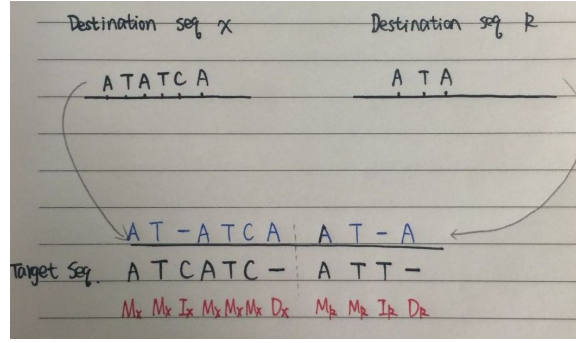 Destination seq x Destination seq k
ATATCA ATA
AT-ATCA AT-A
Target Seq. ATCATC- ATT-
Mx Mx Ix Mx Mx Mx Dx Mk Mk Ik Dk